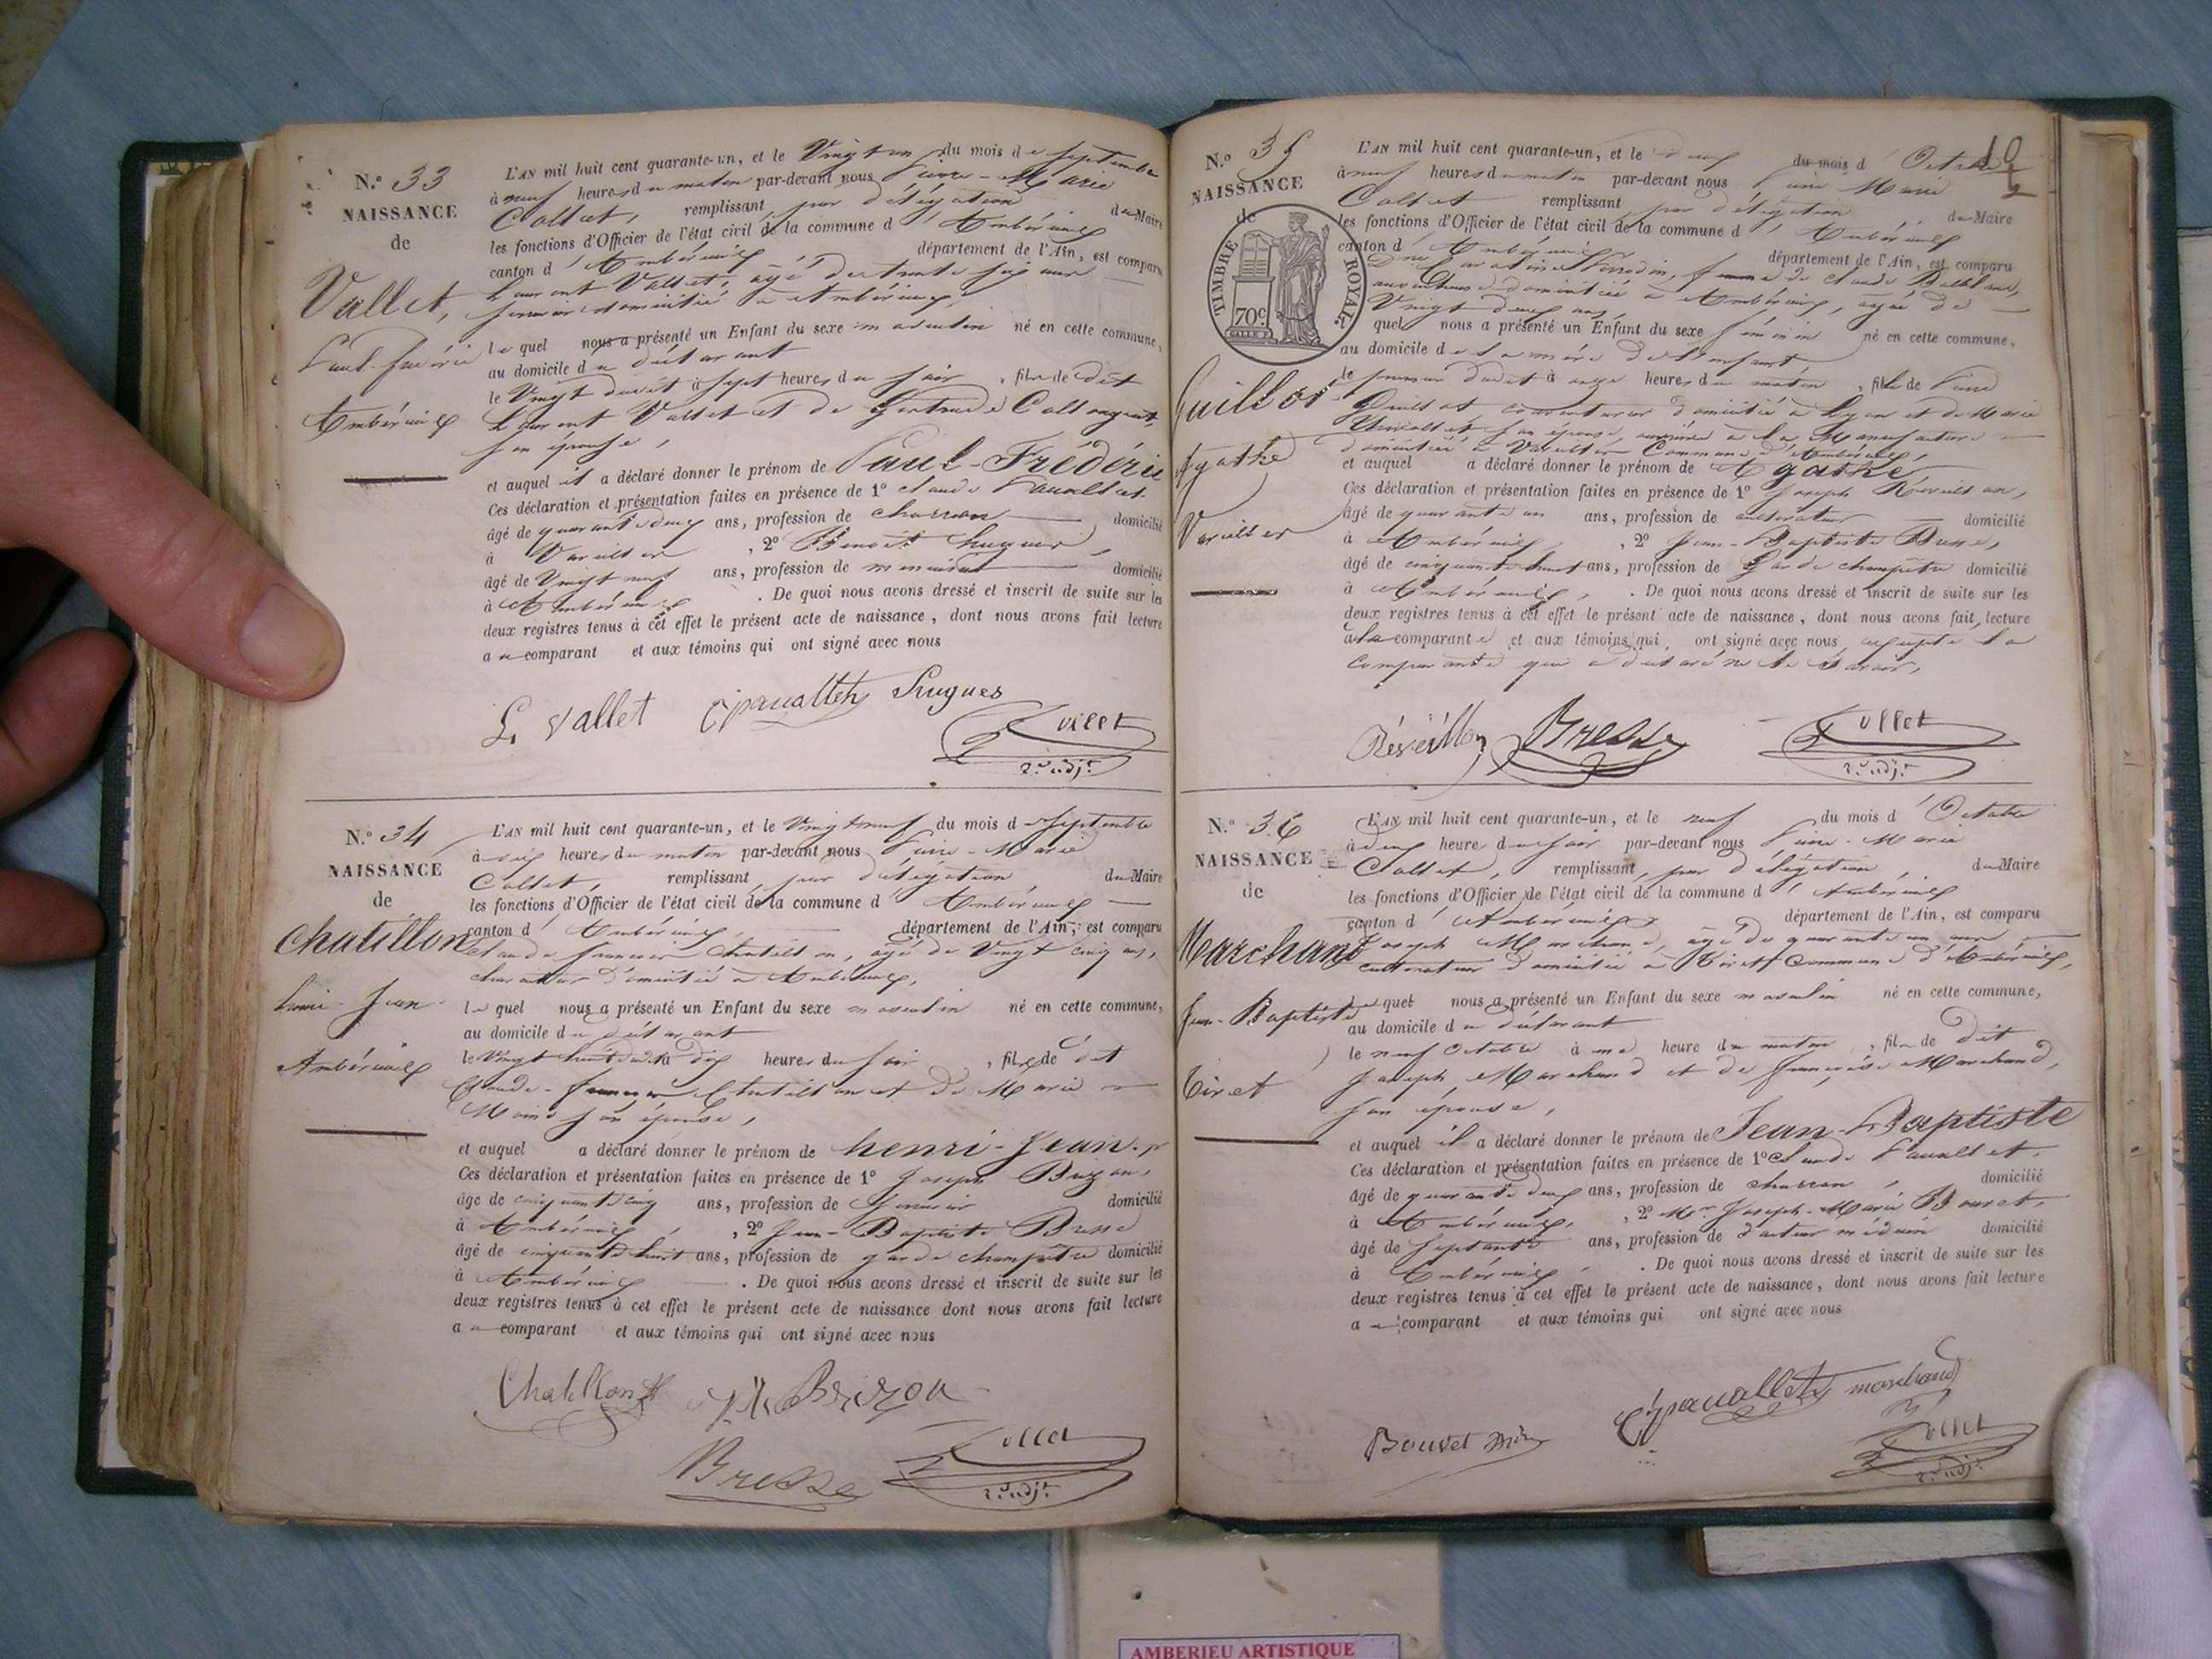 N.º 33
NAISSANCE
de
Vallet,
Paul-Frédéric
Ambérieux
L'AN mil huit cent quarante-un, et le Vingt un du mois de Septembre
à neuf heures du matin par-devant nous Pierre-Marie
Collet, remplissant, par délégation du Maire
les fonctions d'Officier de l'état civil de la commune d'Ambérieux
canton d'Ambérieux département de l'Ain, est comparu
Laurent Vallet, âgé de trente six ans
domicilié à Ambérieux,
lequel nous a présenté un Enfant du sexe masculin né en cette commune,
au domicile du déclarant
le Vingt dudit à sept heures du soir, fils de dit
Laurent Vallet et de Gertrude
son épouse,
et auquel il a déclaré donner le prénom de Paul-Frédéric
Ces déclaration et présentation faites en présence de 1º Claude
âgé de quarante deux ans, profession de charron domicilié
à Vareilles, 2º Benoît Hugues,
âgé de Vingt neuf ans, profession de menuisier domicilié
à Ambérieux. De quoi nous avons dressé et inscrit de suite sur les
deux registres tenus à cet effet le présent acte de naissance, dont nous avons fait lecture
au comparant et aux témoins qui ont signé avec nous
L. Vallet Hugues
Collet
2e adjt
N.º 34
NAISSANCE
de
Chatillon
henri-Jean
Ambérieux
L'AN mil huit cent quarante-un, et le Vingt neuf du mois de Septembre
à dix heures du matin par-devant nous Pierre-Marie
Collet, remplissant, par délégation du Maire
les fonctions d'Officier de l'état civil de la commune d'Ambérieux
canton d'Ambérieux, département de l'Ain, est comparu
Claude françois Chatillon, âgé de Vingt cinq ans,
domicilié à Ambérieux,
lequel nous a présenté un Enfant du sexe masculin né en cette commune,
au domicile du déclarant
le Vingt huit dudit à dix heures du soir, fils de dit
Claude-françois Chatillon et de Marie
son épouse,
et auquel a déclaré donner le prénom de henri-Jean.
Ces déclaration et présentation faites en présence de 1º Joseph
âgé de cinquante cinq ans, profession de domicilié
à Ambérieux, 2º Jean-Baptiste Bresse
âgé de cinquante huit ans, profession de garde champêtre domicilié
à Ambérieux. De quoi nous avons dressé et inscrit de suite sur les
deux registres tenus à cet effet le présent acte de naissance dont nous avons fait lecture
au comparant et aux témoins qui ont signé avec nous
Chatillon
Bresse Collet
2e adjt
10
N.º 35
NAISSANCE
de
TIMBRE ROYAL
70c.
Guillot
Agathe
Vareilles
L'AN mil huit cent quarante-un, et le deux du mois d'Octobre
à neuf heures du matin par-devant nous Pierre Marie
Collet remplissant, par délégation du Maire
les fonctions d'Officier de l'état civil de la commune d'Ambérieux
canton d'Ambérieux département de l'Ain, est comparu
femme de Claude
domiciliée à Ambérieux, âgée de
Vingt deux ans,
quel nous a présenté un Enfant du sexe féminin né en cette commune,
au domicile de la mère de l'enfant,
le premier dudit à onze heures du matin, fille de
Guillot domicilié à Lyon et de Marie
son épouse, ouvrière à la Manufacture
domiciliée à Vareilles Commune d'Ambérieux,
et auquel a déclaré donner le prénom de Agathe
Ces déclaration et présentation faites en présence de 1º Joseph Réveillon,
âgé de quarante un ans, profession de cultivateur domicilié
à Ambérieux, 2º Jean-Baptiste Bresse,
âgé de cinquante huit ans, profession de Garde champêtre domicilié
à Ambérieux,. De quoi nous avons dressé et inscrit de suite sur les
deux registres tenus à cet effet le présent acte de naissance, dont nous avons fait lecture
à la comparante et aux témoins qui ont signé avec nous, excepté la
comparante qui a déclaré ne le savoir,
Réveillon Bresse Collet
2e adjt
N.º 36
NAISSANCE
de
Marchand
Jean-Baptiste
Tiret
L'AN mil huit cent quarante-un, et le neuf du mois d'Octobre
à deux heures du soir par-devant nous Pierre-Marie
Collet, remplissant, par délégation, du Maire
les fonctions d'Officier de l'état civil de la commune d'Ambérieux
canton d'Ambérieux, département de l'Ain, est comparu
Joseph Marchand, âgé de quarante un ans
cultivateur domicilié à Tiret Commune d'Ambérieux,
lequel nous a présenté un Enfant du sexe masculin né en cette commune,
au domicile du déclarant
le neuf Octobre à une heure du matin, fils de dit
Joseph Marchand et de françoise Marchand,
son épouse,
et auquel il a déclaré donner le prénom de Jean-Baptiste
Ces déclaration et présentation faites en présence de 1º Claude
âgé de quarante deux ans, profession de charron, domicilié
à Ambérieux, 2º Mr. Joseph-Marie Bouvet,
âgé de septante ans, profession de docteur médecin domicilié
à Ambérieux. De quoi nous avons dressé et inscrit de suite sur les
deux registres tenus à cet effet le présent acte de naissance, dont nous avons fait lecture
au comparant et aux témoins qui ont signé avec nous
marchand
Bouvet Collet
2e adjt
AMBERIEU ARTISTIQUE